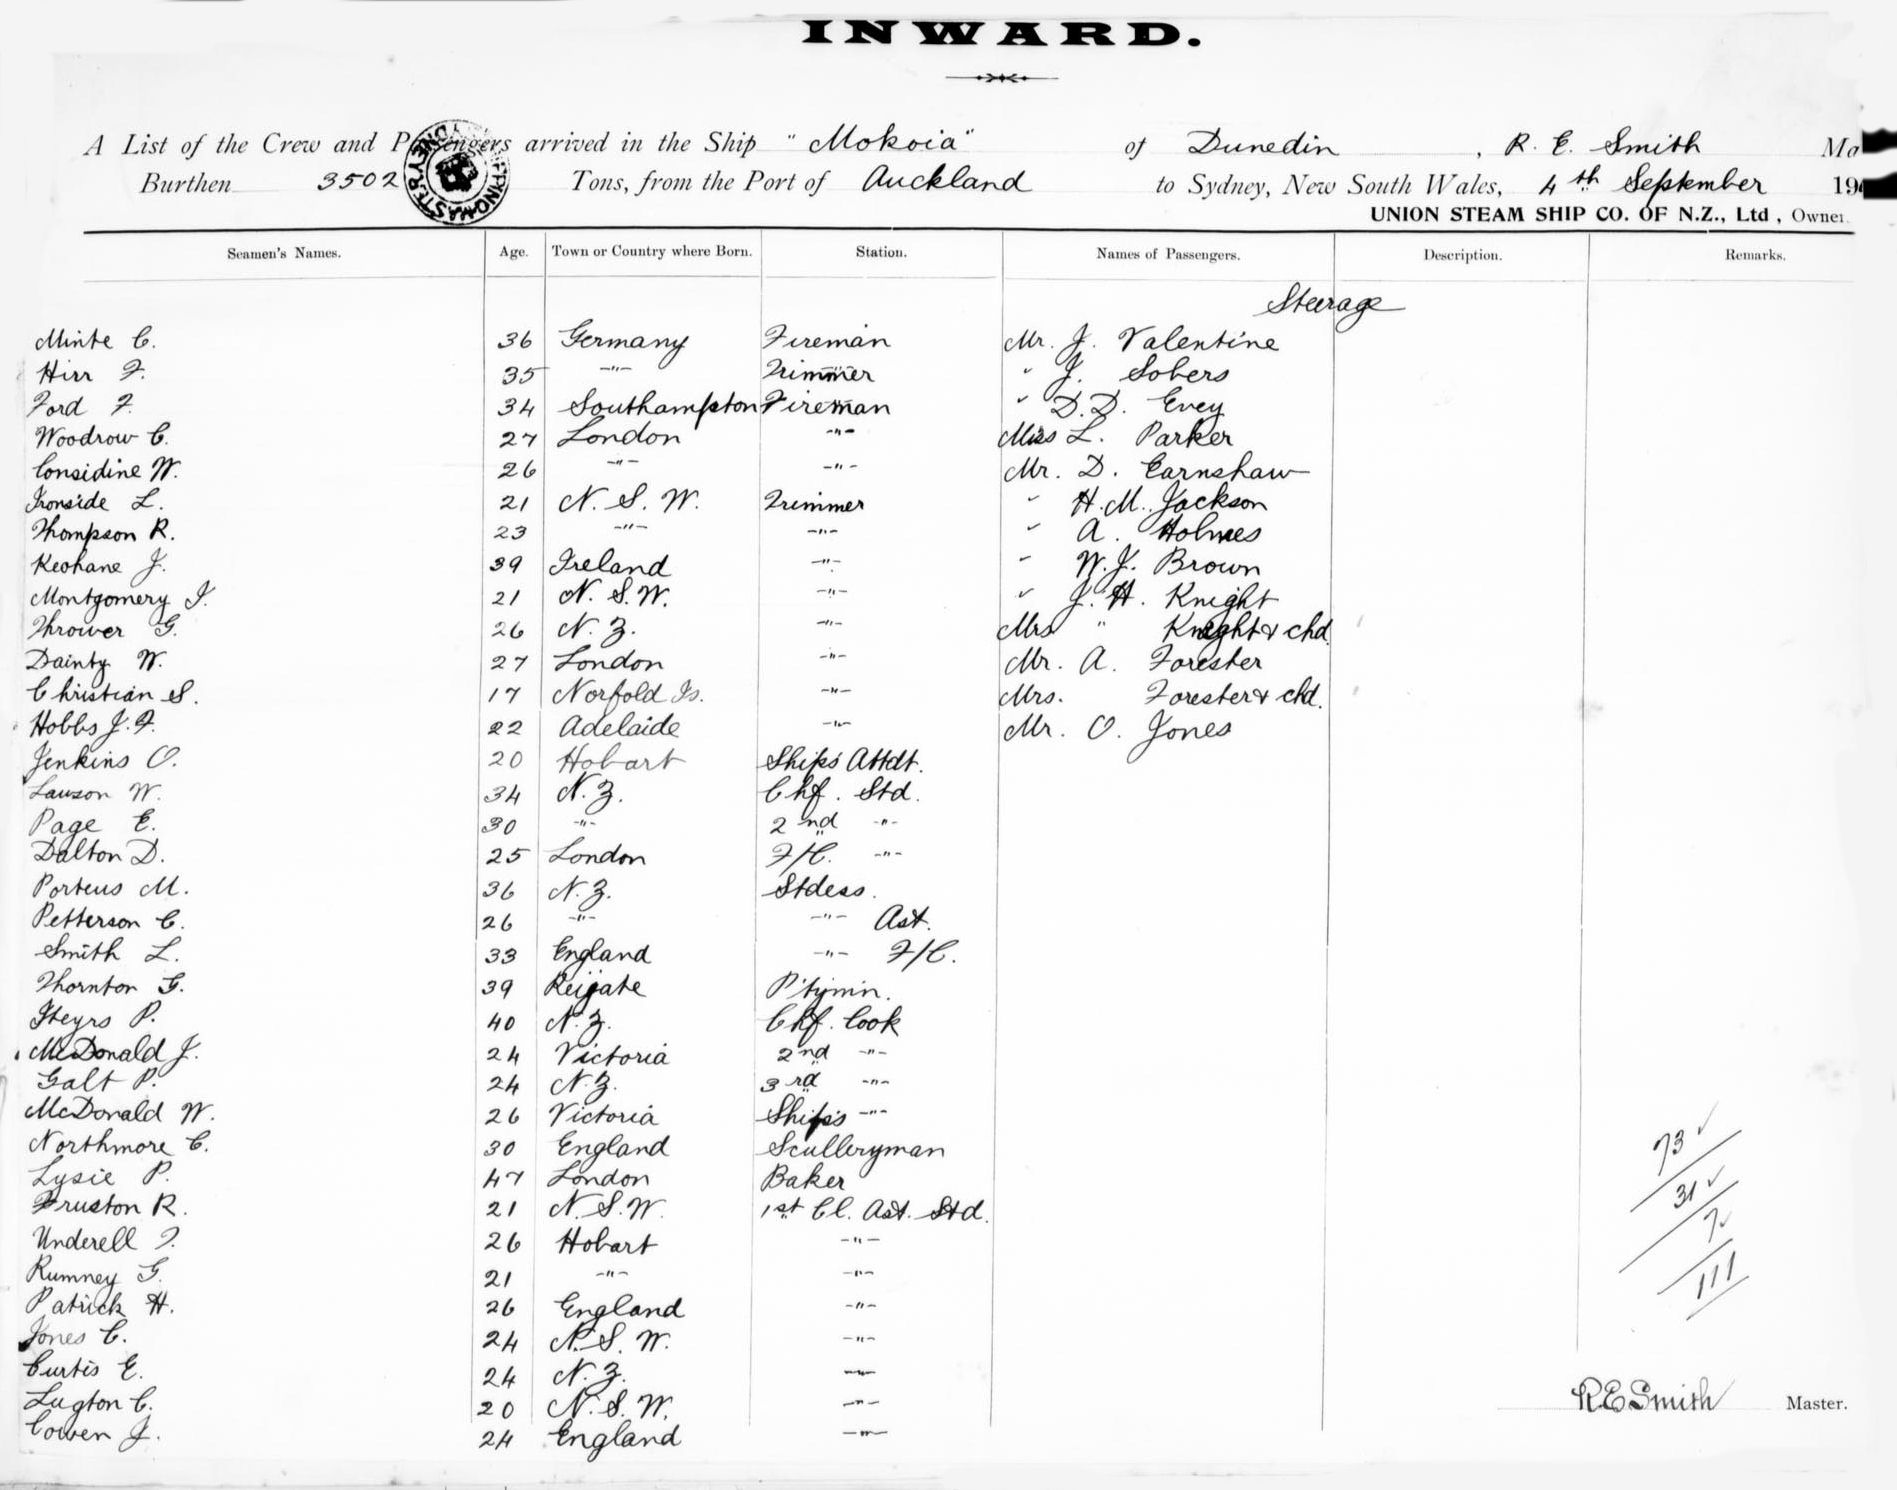 INWARD.
A List of the Crew and Passengers arrived in the Ship "Mokoia" of Dunedin, R. E. Smith Ma
Burthen 3502 Tons, from the Port of Auckland to Sydney, New South Wales, 4th September 19
UNION STEAM SHIP CO. OF N.Z., Ltd, Owner
Seamen's Names. Age. Town or Country where Born. Station. Names of Passengers. Description. Remarks.
Steerage
Minte C. 36 Germany Fireman Mr. J. Valentine
Hirr F. 35 -"- Trimmer " J. Sobers
Ford F. 34 Southampton Fireman " D.D. Evey
Woodrow C. 27 London -"- Miss L. Parker
Considine W. 26 -"- -"- Mr. D. Earnshaw
Ironside L. 21 N. S. W. Trimmer " H.M. Jackson
Thompson R. 23 -"- -"- " A. Holmes
Keohane J. 39 Ireland -"- " W.J. Brown
Montgomery J. 21 N. S.W. -"- " J. H. Knight
Thrower G. 26 N. Z. -"- Mrs " Knight & chd.
Dainty W. 27 London -"- Mr. A. Forester
Christian S. 17 Norfold Is. -"- Mrs. Forester & chd.
Hobbs J. F. 22 Adelaide -"- Mr. O. Jones
Jenkins O. 20 Hobart Ships Attdt.
Lawson W. 34 N. Z. Chf. Std.
Page E. 30 -"- 2nd -"-
Dalton D. 25 London F/C. -"-
Porteus M. 36 N. Z. Stdess.
Petterson C. 26 -"- -"- Ast.
Smith L. 33 England -"- F/C.
Thornton G. 39 Reigate P'tymn.
Steyrs P. 40 N. Z. Chf. Cook
McDonald J. 24 Victoria 2nd -"-
Galt P. 24 N. Z. 3rd -"-
McDonald W. 26 Victoria Ships -"-
Northmore C. 30 England Sculleryman
Lysie P. 47 London Baker
Fruston R. 21 N. S. W. 1st Cl. Ast. Std.
Underell F. 26 Hobart -"-
Rumney G. 21 -"- -"-
Patrick H. 26 England -"-
Jones C. 24 N. S. W. -"-
Curtis E. 24 N. Z. -"-
Lugton C. 20 N. S. W. -"-
Cowen J. 24 England -"-
73
31
7
111
R E Smith Master.